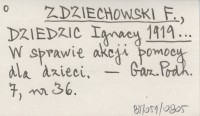 ZDZIECHOWSKI F.,
DZIEDZIC Ignacy 1919...
W sprawie akcji pomocy
dla dzieci. — Gaz. Podh.
7, nr 36.
BJ/051/0805